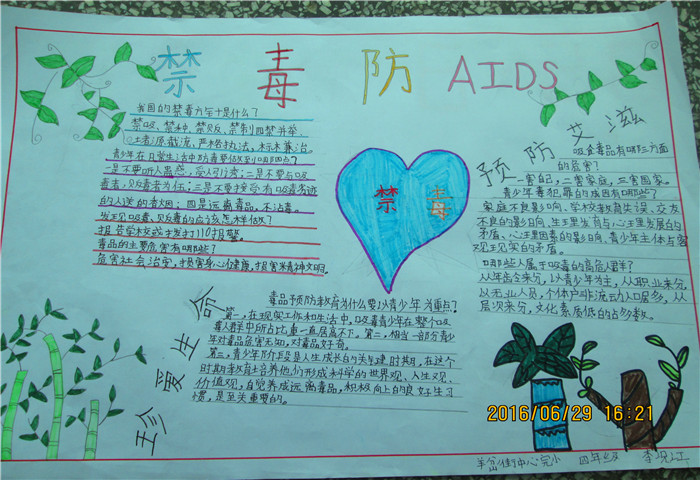 禁 毒 防 AIDS
我国的禁毒方针是什么？
禁吸、禁种、禁贩、禁制四禁并举，
堵源截流，严格执法，标本兼治。
青少年在日常生活中防毒要做到哪四点？
一是不要听人蛊惑，受人引诱；二是不要与吸
毒者，贩毒者为伍；三是不要接受有吸毒劣迹
的人送的香烟；四是远离毒品，不沾毒。
发现吸毒、贩毒的应该怎样做？
报告学校或打发打110报警。
毒品的主要危害有哪些？
危害社会治安，损害身心健康，损害精神文明。
禁 毒
预防艾滋
吸食毒品有哪三方面
的危害？
一害自己，二害家庭，三害国家。
青少年毒犯罪的成因有哪些？
家庭不良影响、学校教育失误、交友
不良的影响、生理发育与心理发展的
矛盾、心理因素的影响、青少年主体与客
观现实的矛盾。
哪些人属于吸毒的高危人群？
从年龄来分，以青少年为主，从职业来分，
以无业人员，个体户和流动人口居多，从
层次来分，文化素质低的占多数。
珍爱生命
毒品预防教育为什么要以青少年为重点？
第一，在现实工作和生活中，吸毒青少年在整个吸
毒人群中所占比重一直居高不下。第二，相当一部分青少
年对毒品危害无知，对毒品好奇。
第三，青少年阶段是人生成长的关键时期，在这个
时期教育培养他们形成科学的世界观、人生观、
价值观，自觉养成远离毒品，积极向上的良好生习
惯，是至关重要的。
2016/06/29 16:21
羊岔街中心完小 四年级